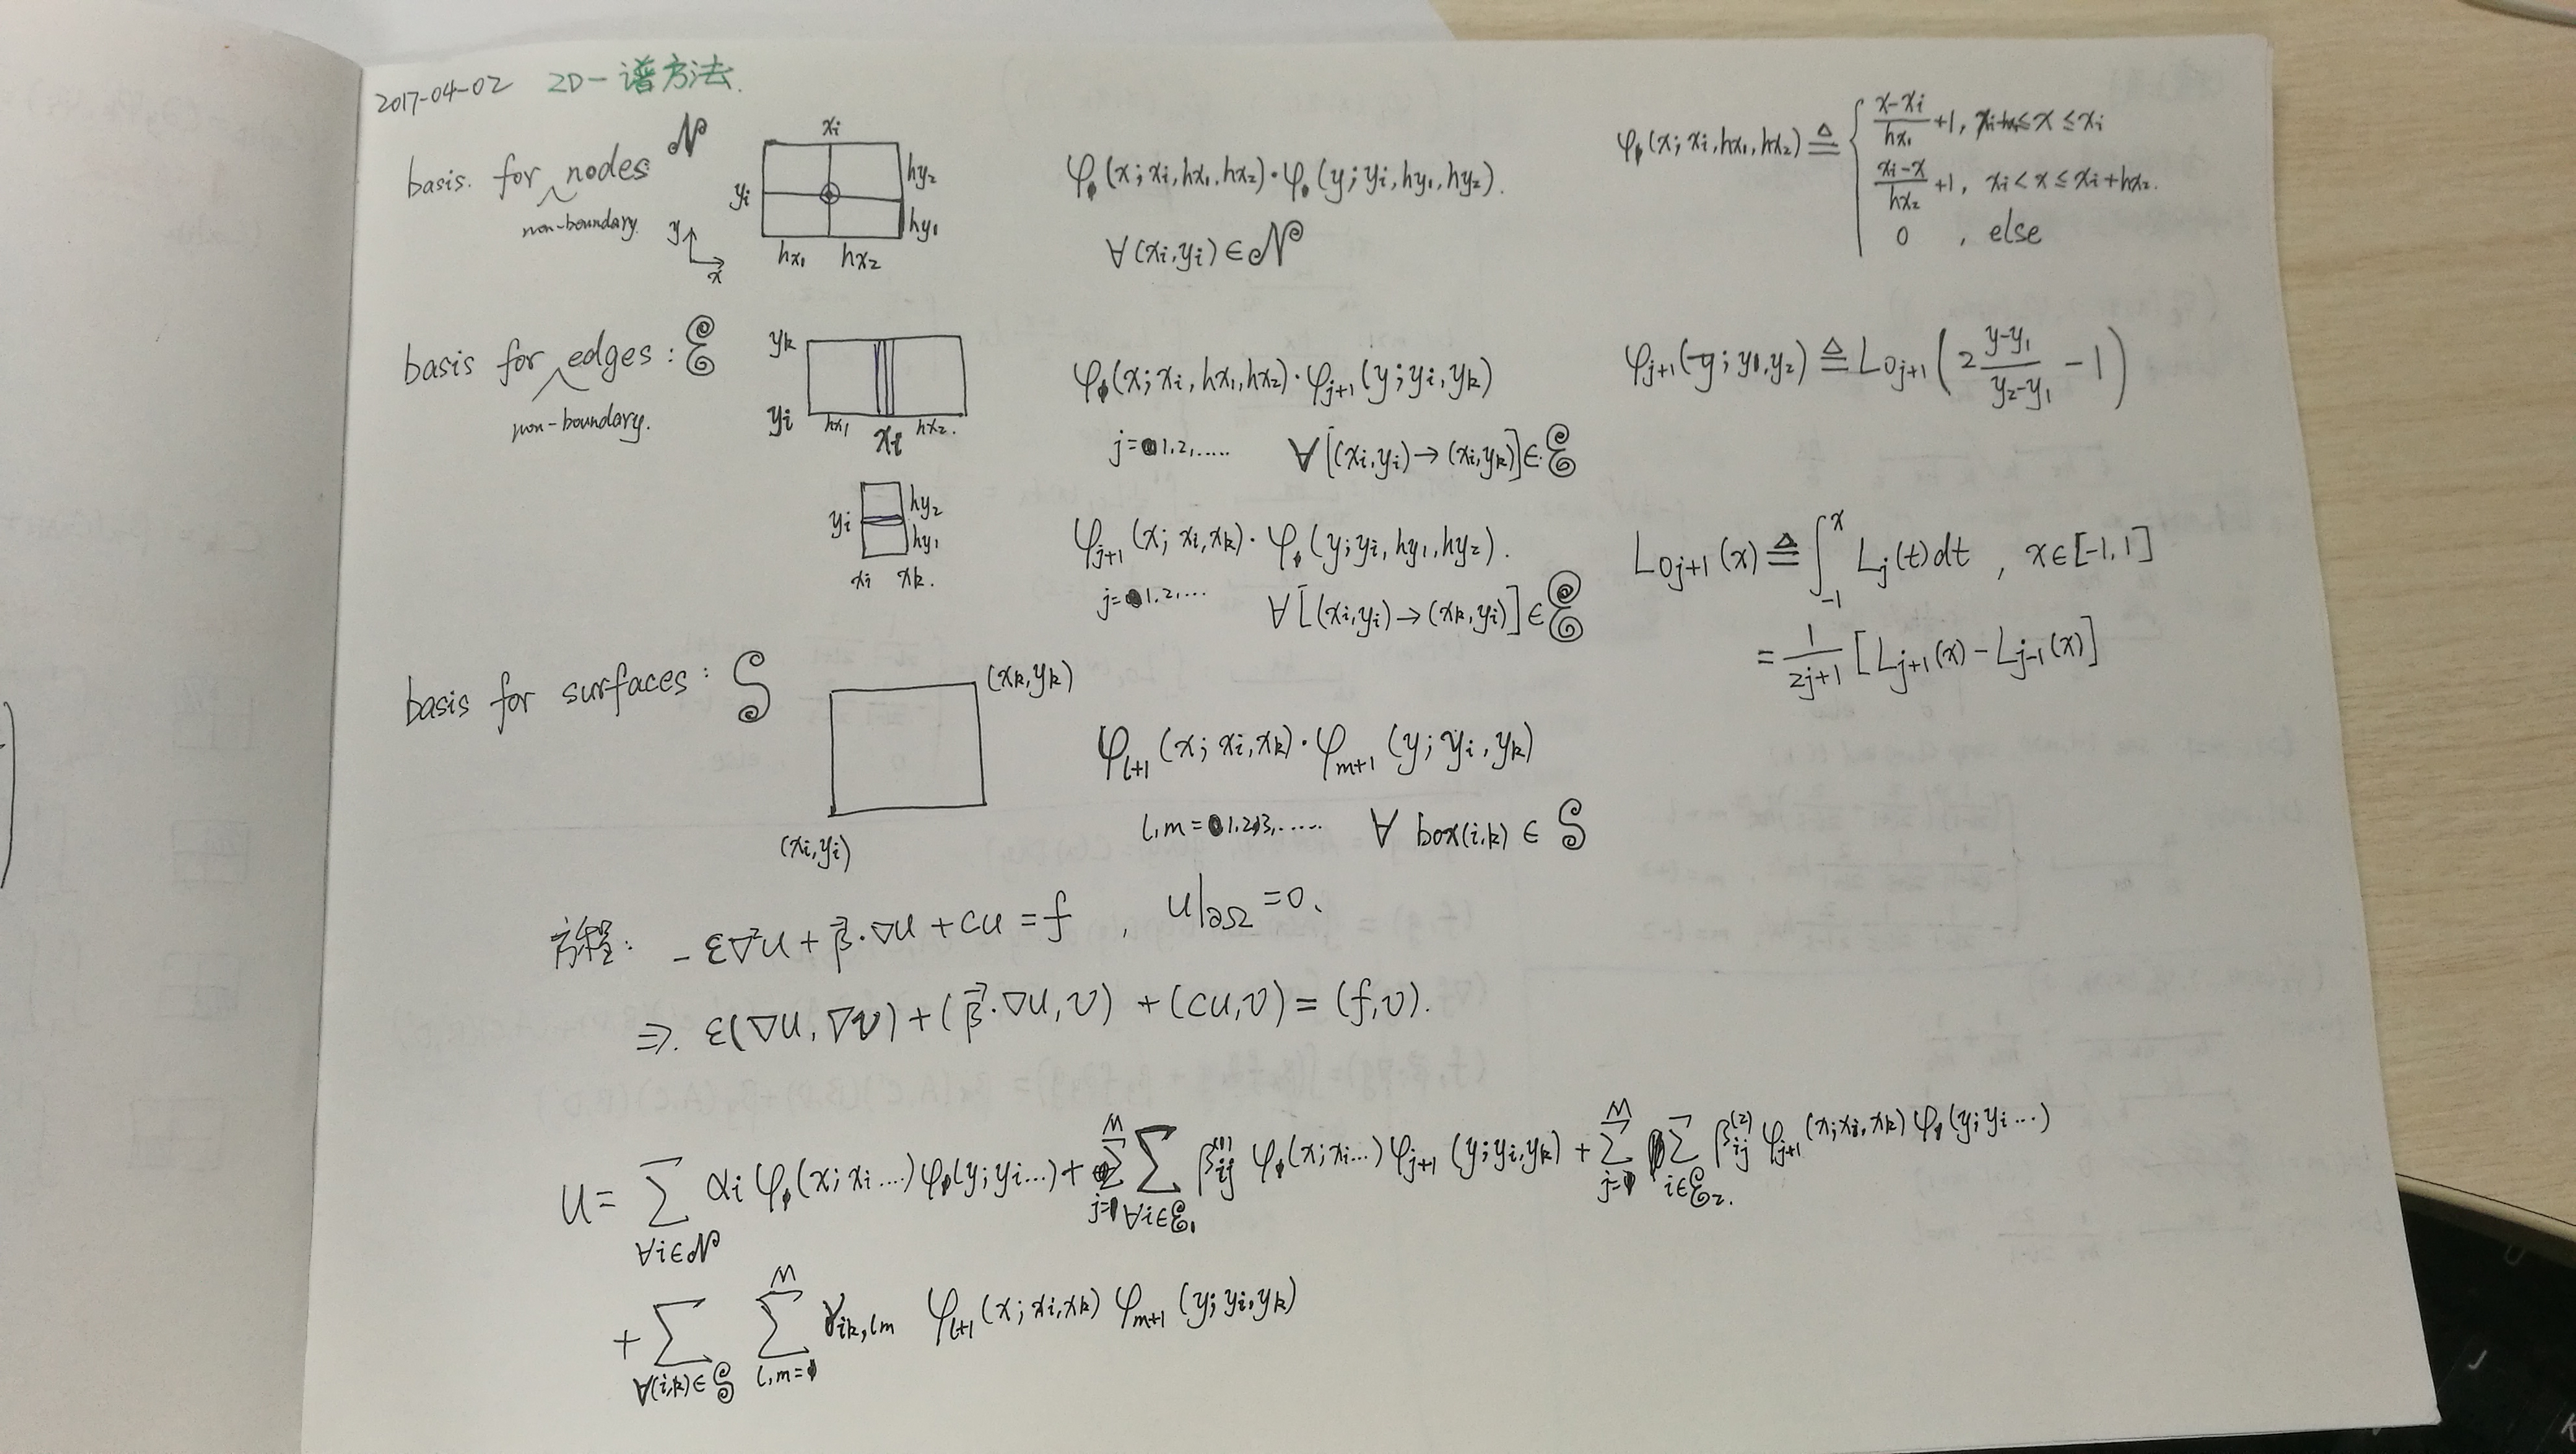 2017-04-02 2D-谱方法.
basis. for nodes 𝒩
non-boundary.
y
x
xi
yi
hy₂
hy₁
hx₁ hx₂
φ₁(x; xi, hx₁, hx₂)·φ₁(y; yi, hy₁, hy₂).
∀(xi, yi) ∈ 𝒩
φ₁(x; xi, hx₁, hx₂) ≜ { (x-xi)/hx₁ +1, ≤ x ≤ xi
(xi-x)/hx₂ +1, xi < x ≤ xi+hx₂.
0 , else
basis for edges : ℰ
non-boundary.
yk
yi
hx₁ xi hx₂.
φ₁(x; xi, hx₁, hx₂)·φj+1(y; yi, yk)
j= 1,2,..... ∀[(xi,yi)→(xi,yk)]∈ℰ
φj+1(y; y₁, y₂) ≜ Loj+1(2 (y-y₁)/(y₂-y₁) - 1)
yi
hy₂
hy₁
xi xk.
φj+1(x; xi, xk)·φ₁(y; yi, hy₁, hy₂).
j= 1,2,... ∀[(xi,yi)→(xk,yi)]∈ℰ
Loj+1(x) ≜ ∫₋₁ˣ Lj(t)dt , x∈[-1,1]
= 1/(2j+1) [Lj+1(x) - Lj-1(x)]
basis for surfaces : S
(xk,yk)
(xi,yi)
φl+1(x; xi, xk)·φm+1(y; yi, yk)
l,m= 1,2,3,...... ∀ box(i,k) ∈ S
方程: -ε∇²u + β⃗·∇u + cu = f , u|∂Ω = 0.
⇒. ε(∇u, ∇v) + (β⃗·∇u, v) + (cu, v) = (f, v).
u = ∑∀i∈𝒩 αi φ₁(x; xi...) φ₁(y; yi...) + ∑j=1^M ∑∀i∈ℰ₁ βij⁽¹⁾ φ₁(x; xi...) φj+1(y; yi, yk) + ∑j=1^M ∑i∈ℰ₂. βij⁽²⁾ φj+1(x; xi, xk) φ₁(y; yi...)
+ ∑∀(i,k)∈S ∑l,m=1^M γik,lm φl+1(x; xi, xk) φm+1(y; yi, yk)